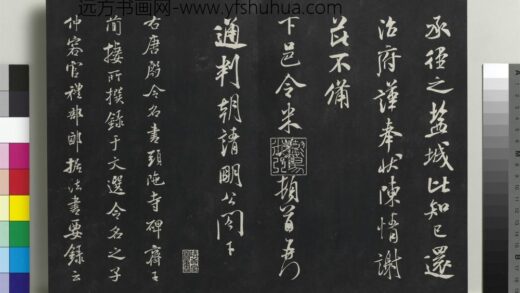 远方书画网-www.yfshuhua.com
承徑之鹽城比知已還
治府謹奉狀陳情謝
不備
下邑令米頓首再
通判朝請明公閤下
右唐殷令名書頭陀寺碑齊王
簡棲所撰錄于文選令名之子
仲容官禮部郎按法書要錄云